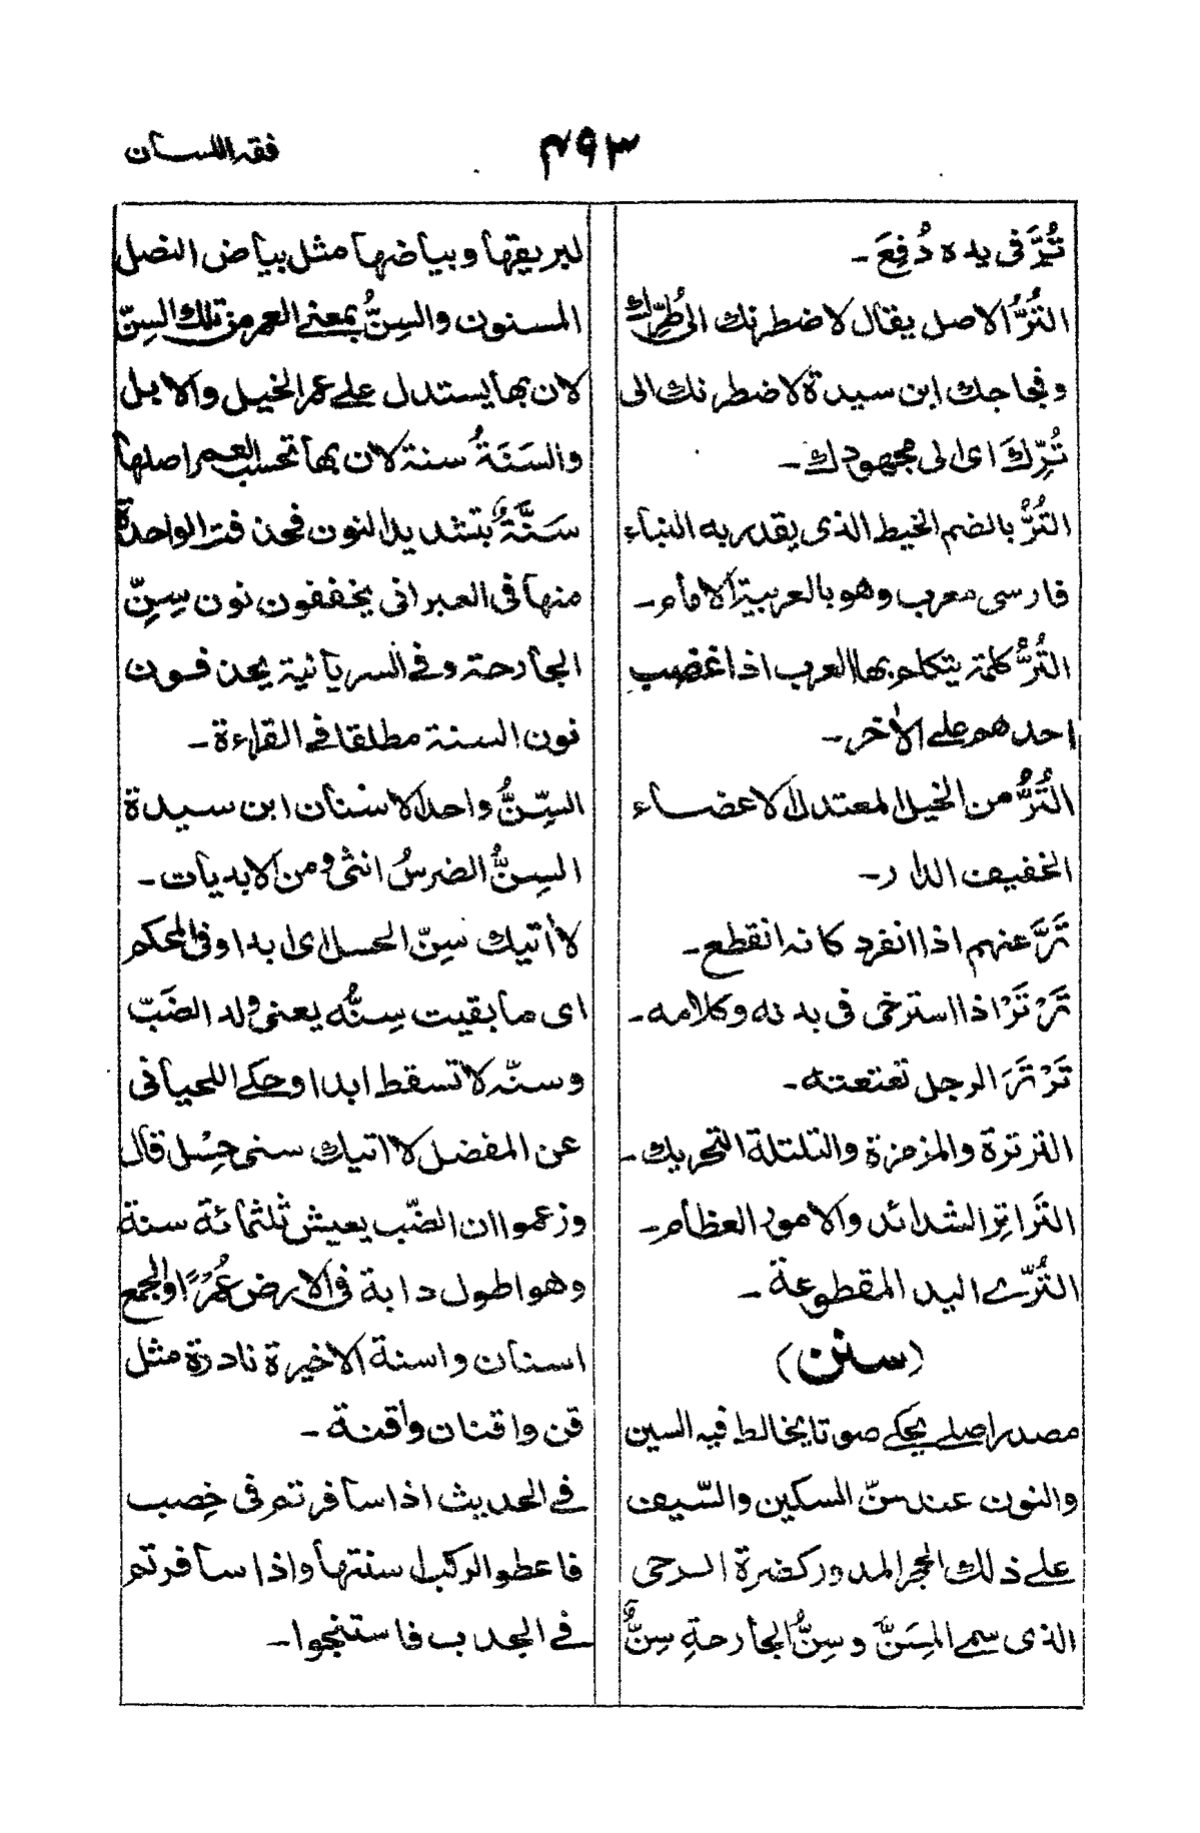 فقه اللسان
۴۹۳
تُرَّ فى يده دُفِعَ -
التُّرُّ الاصل يقال لاضطرنك الى طُرِّك
وفجاجك ابن سيدة لاضطرنك الى
تُرِّكَ اى الى مجهودك -
التُرُّ بالضم الخيط الذى يقدر به البناء
فارسى معرب وهو بالعربية الامام -
التُرُّ كلمة يتكلم بها العرب اذا غضب
احدهم على الآخر -
التُرُّ من الخيل المعتدل الاعضاء
الخفيف الدار -
تَرَّ عنهم اذا انفرد كانه انقطع -
تَرْتَرَ اذا استرخى فى بدنه وكلامه -
تَرْتَرَ الرجل تعتعته -
الترترة والمزمزة والتلتلة التحريك -
التَراتِر الشدائد والامور العظام -
التُرّى اليد المقطوعة -
(سنن)
مصدر اصلى يحكى صوتا يخالط فيه السين
والنون عند سنّ السكين والسّيف
على ذلك الحجر المدور كضرة الرحى
الذى سمى المِسَنَّ وسِنُّ الجارحةِ سِنٌّ
لبريقها وبياضها مثل بياض النصل
المسنون والسِنُّ بمعنى العمر من تلك السِنّ
لان بها يستدل على عمر الخيل والابل
والسَنَةُ سنة لان بها تحسب العمر اصلها
سَنَّةٌ بتشديد النون فحذفت الواحدة
منها فى العبرانى يخففون نون سِنِّ
الجارحة وفى السريانية يحذفون
نون السنة مطلقا فى القراءة -
السِّنُّ واحد الاسنان ابن سيدة
السِنُّ الضرسُ انثى ومن الابديات -
لا أتيك سِنّ الحسل اى ابدا وفى المحكم
اى ما بقيت سِنُّه يعنى ولد الضَبّ
وسنّه لا تسقط ابدا وحكى اللحيانى
عن المفضل لا اتيك سنى حِسْل قال
وزعموا ان الضّب يعيش ثلثمائة سنة
وهو اطول دابة فى الارض عُمْرًا والجمع
اسنان واسنة الاخيرة نادرة مثل
قن واقنان واقنة -
فى الحديث اذا سافرتم فى خِصب
فاعطوا الركب سنتها واذا سافرتم
فى الجدب فاستنجوا -